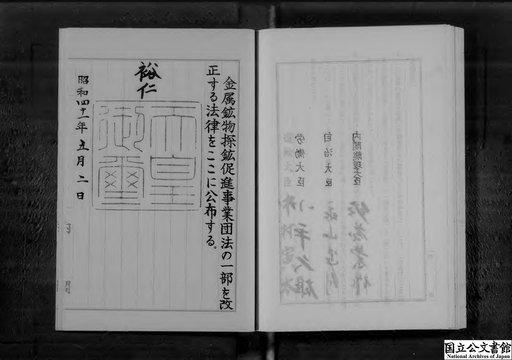 内閣総理大臣 佐藤榮作
自治大臣
労働大臣 小平久雄
金属鉱物探鉱促進事業団法の一部を改
正する法律をここに公布する。
裕仁
天皇
御璽
昭和四十一年五月二日
国立公文書館
National Archives of Japan